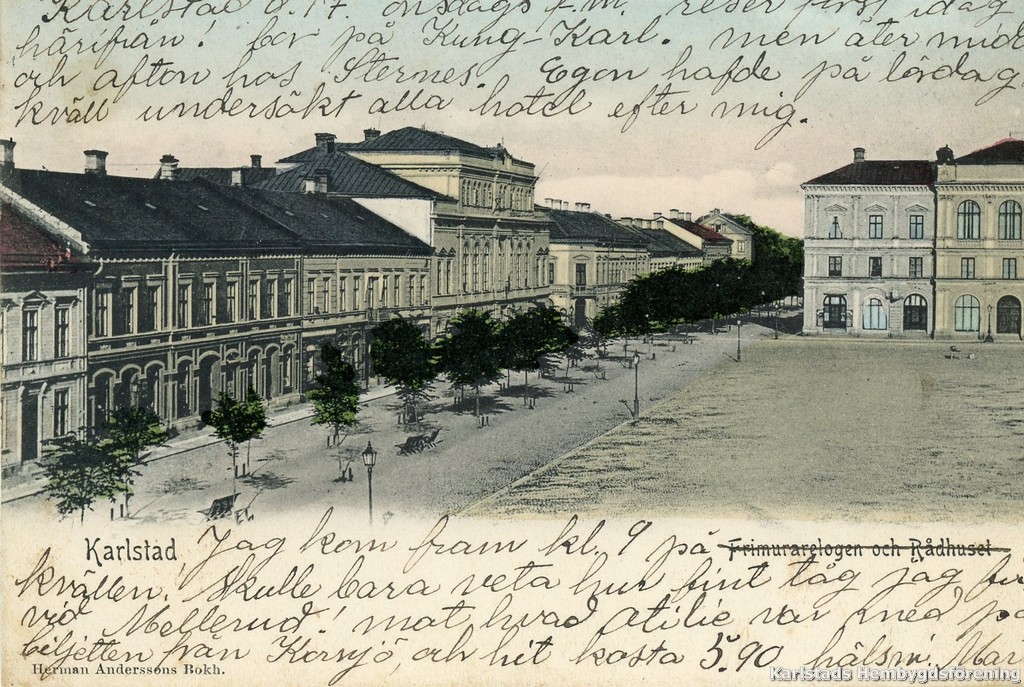 Karlstad d. 17. onsdags f.m. reser först idag
härifrån! bor på Kung-Karl. men äter midd
och afton hos Sternes. Egon hafde på lördag
kväll undersökt alla hotel efter mig.
Karlstad Jag kom fram kl. 9 på Frimurarelogen och Rådhuset
kvällen. Skulle bara veta hur fint tåg jag
vid Mellerud! mat, hvad var med på
biljetten från Kornsjö, och hit kosta 5.90 hälsn. Mar
Herman Anderssons Bokh.
Karlstads Hembygdsförening